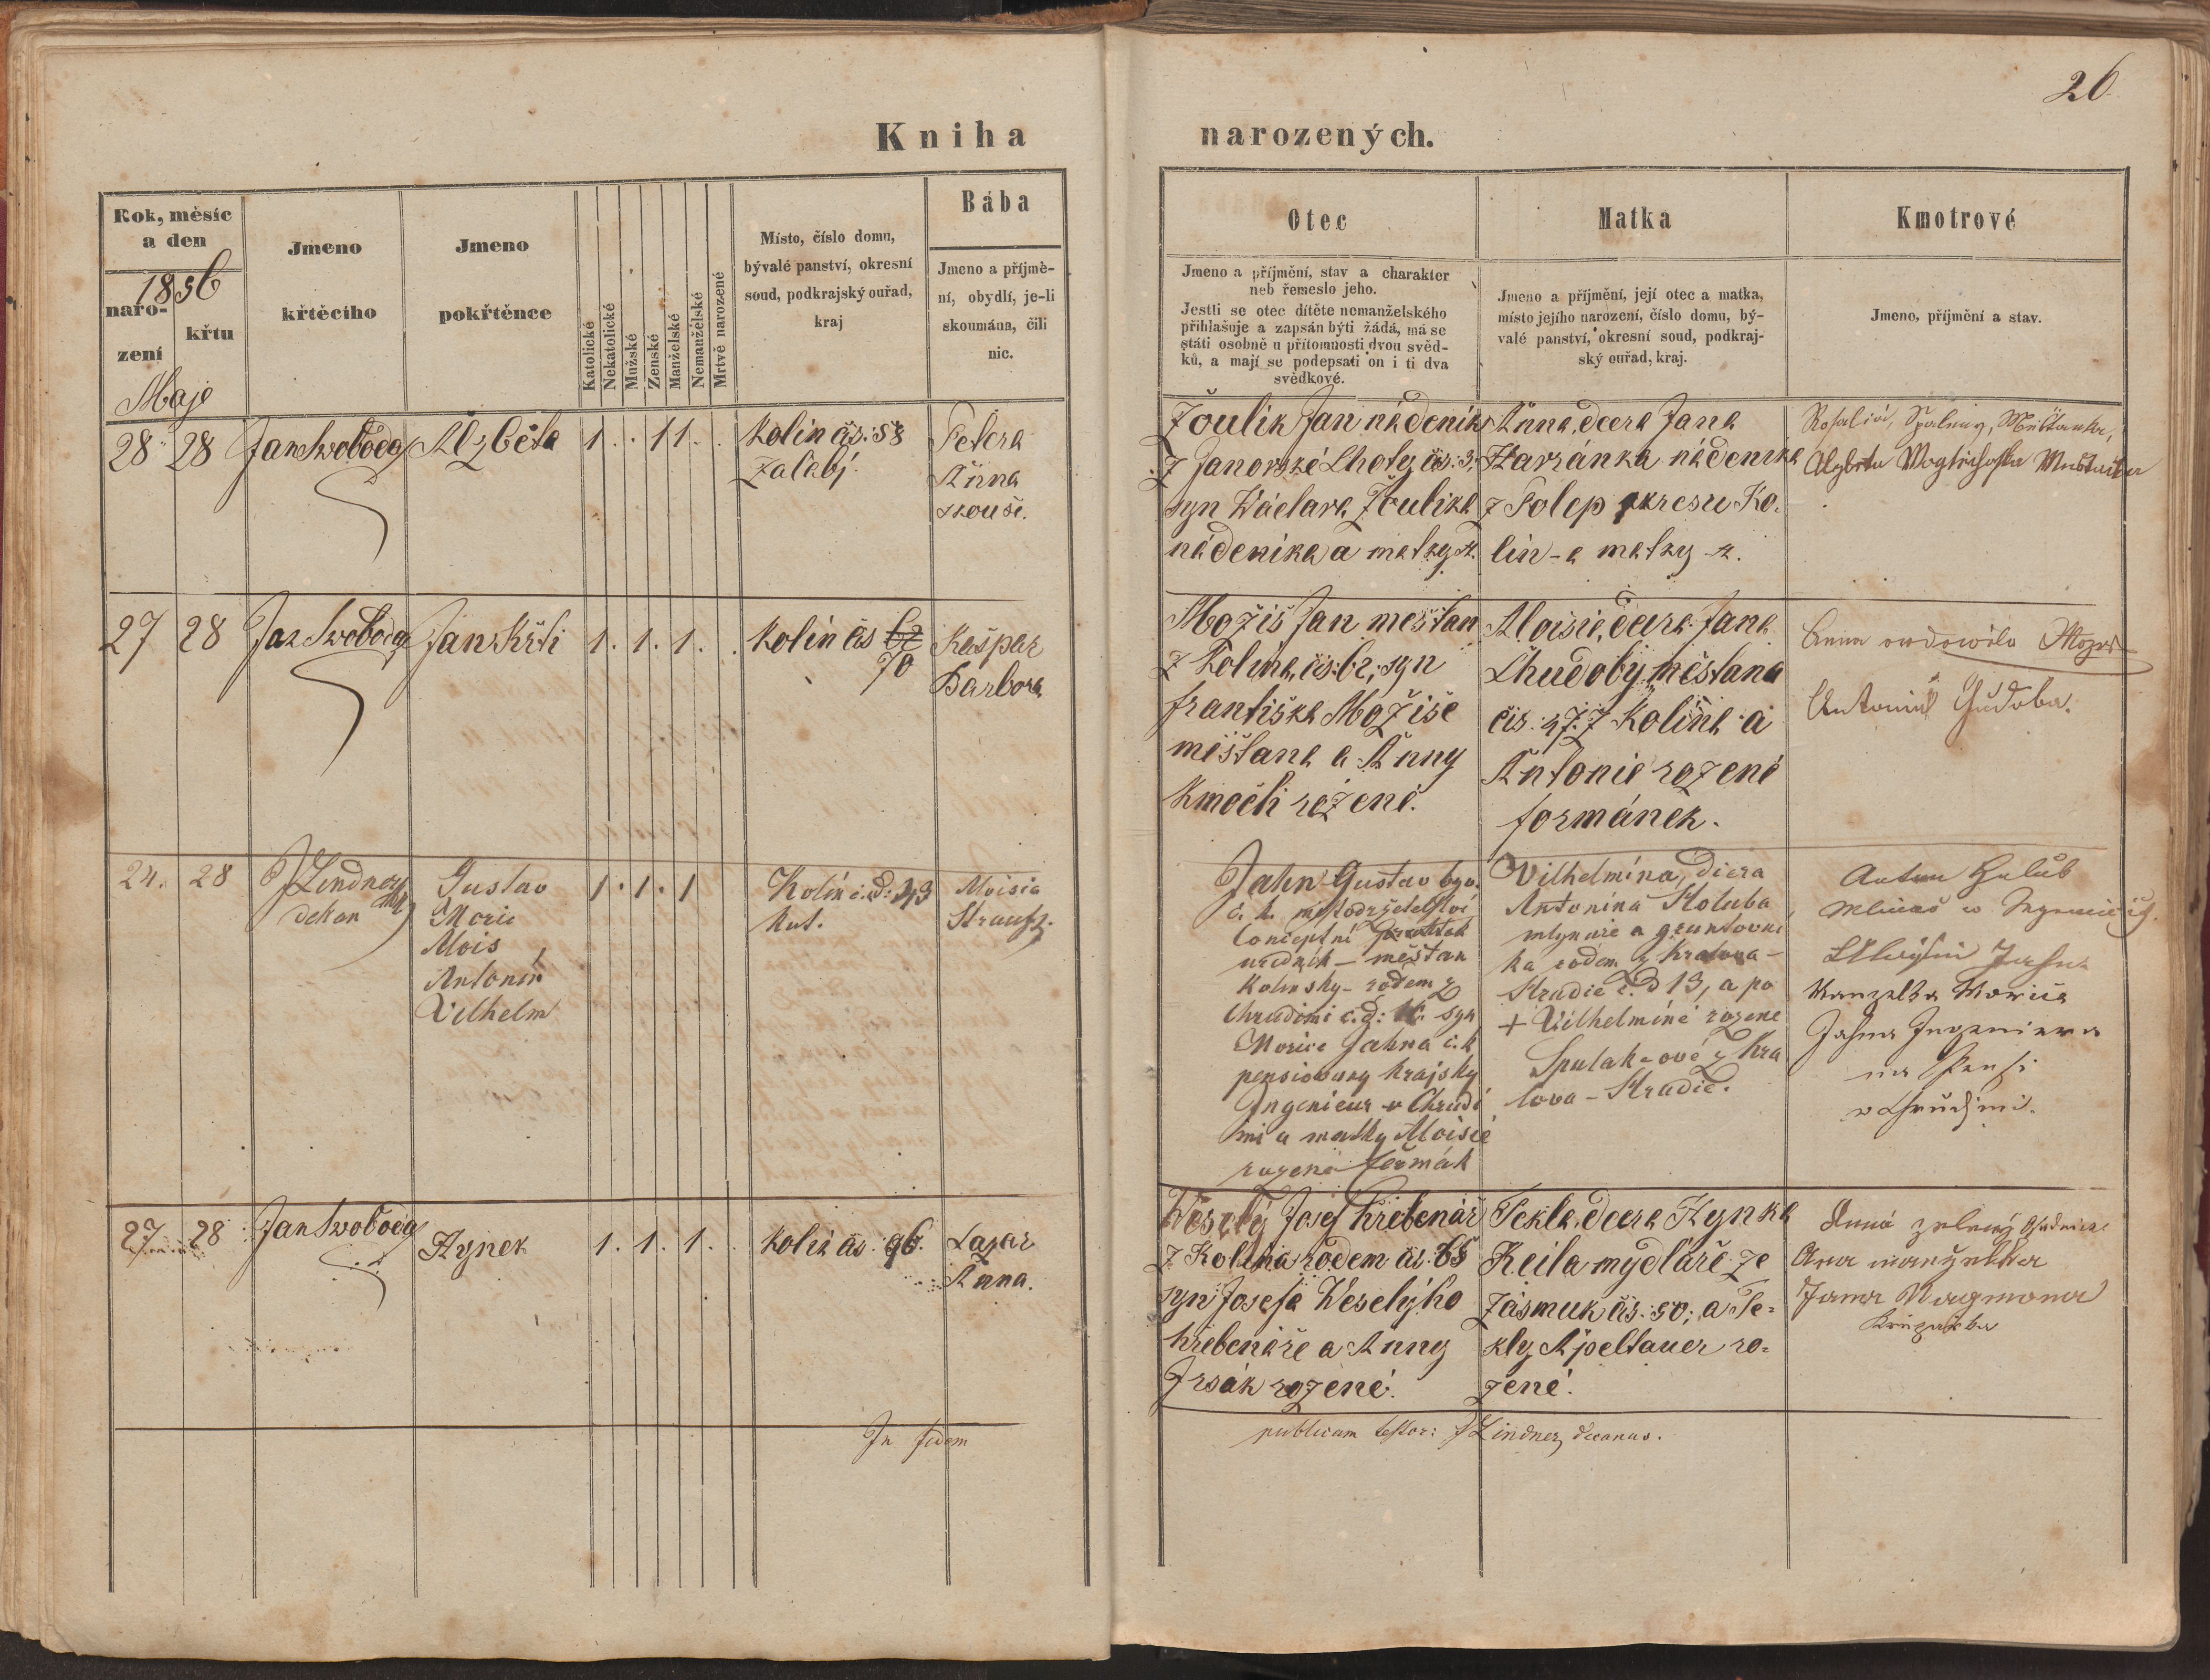 26
Kniha narozených.
Rok, měsíc
a den
1856
naro-
zení
křtu
Maje
Jmeno
křtěcího
Jmeno
pokřtěnce
Katolické
Nekatolické
Mužské
Zenské
Manželské
Nemanželské
Mrtvě narozené
Místo, číslo domu,
bývalé panství, okresní
soud, podkrajský ouřad,
kraj
Bába
Jmeno a příjmě-
ní, obydlí, je-li
skoumána, čili
nic.
Otec
Jmeno a příjmění, stav a charakter
neb řemeslo jeho.
Jestli se otec dítěte nemanželského
přihlašuje a zapsán býti žádá, má se
státi osobně u přítomnosti dvou svěd-
ků, a mají se podepsati on i ti dva
svědkové.
Matka
Jmeno a příjmění, její otec a matka,
místo jejího narození, číslo domu, bý-
valé panství, okresní soud, podkraj-
ský ouřad, kraj.
Kmotrové
Jmeno, příjmění a stav.
28 28 Jan Swoboda Alzběta 1 . . 1 1 . .
Kolín čís: 58
Zalabj.
Petera
Anna
zkouše.
Žoulik Jan nádenik
z Janovské Lhoty čís: 3.
syn Wáclava Žoulika
nádenika a matky
Anna, dcera Jana
Harzánka nádenika
z Polep okresu Ko-
lín - a matky
27 28 Jan Swoboda Jan Křti 1 . 1 . 1 . .
Kolín čís 62
70
Kašpar
Barbora
Možiš Jan mešťan
z Kolína, čís: 62, syn
Františka Možiše
měšťana a Anny
Kmoch rozené.
Aloisie, dcera Jana
Chudoby, měšťana
čís: 47 z Kolína a
Antonie rozené
Formánek.
Anna
Antonín Chudoba.
24. 28 J Lindner
dekan
Gustav
Moric
Alois
Antonín
Vilhelm
1 . 1 . 1
Kolín č. d: 43
Kut.
Aloisia
Strauss.
Jahn Gustav byv.
c. k. místodržetelství
Conceptní
uředník - měšťan
Kolínský - rodem z
Chrudimi č. d: syn
Morice Jahna c. k
pensiovaný Krajsky
Ingenieur v Chrudi
mi a matky Aloisie
rozené Čermák
Vilhelmína, dcera
Antonína Holuba
mlynáře a gruntovní
ka rodem z Kralova -
Hradic č. d 13, a po
+ Vilhelmíně rozene
Spulak-ové z Kra
lova - Hradic.
Anton Holub
Aloysie Jahn
Manzelka Morica
Jahna Ingeniera
na Pensi
w Chrudimi.
27 28 Jan Swoboda Hynek 1 . 1 . 1 .
Kolín čís: 96.
Lazar
Anna.
Weselý Josef hřebenář
z Kolína rodem čís. 65
syn Josefa Weselýho
hřebenáře a Anny
Jrsák rozené.
Tekla, dcera Hynka
Keila mydláře ze
Zásmuk čís: 50; a Te-
kly Apeltauer ro-
zené.
Anna
Ana manželka
Jana
In fidem publicam testor: J Lindner, decanus.